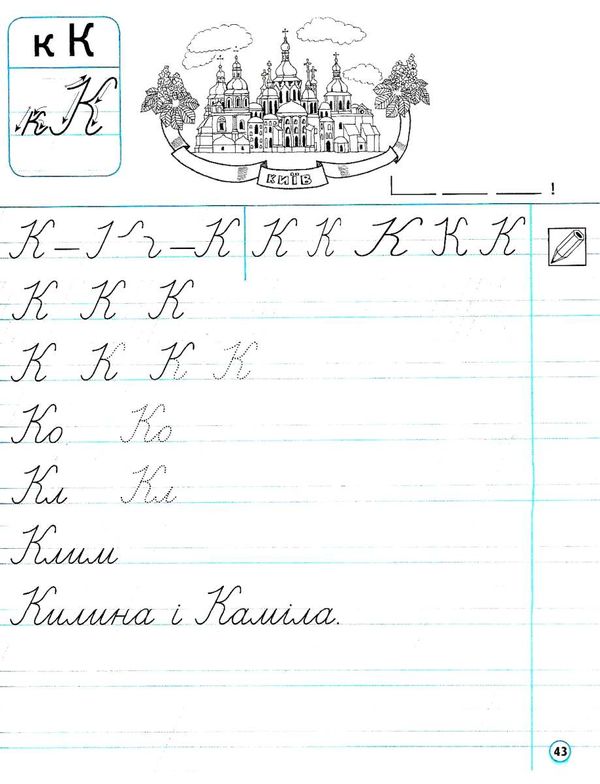 к К
к К
КИЇВ
!
К – І ~ г – К К К К К К
К К К
К К К К
Ко Ко
Кл Кл
Клим
Килина і Каміла.
43